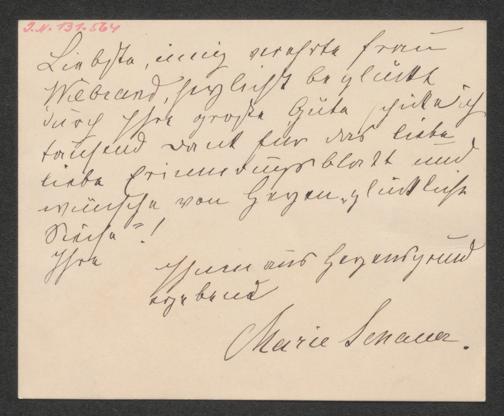 J.N. 131.564
Liebste, innig verehrte Frau
Wilbrand, herzlichst beglückt
durch Ihre große Güte schicke ich
tausend Dank für das liebe
liebe Erinnerungsblatt und
wünsche von Herzen „glückliche
Reise"!
Ihre
Ihnen aus Herzensgrund
ergebene
Marie Schauer.